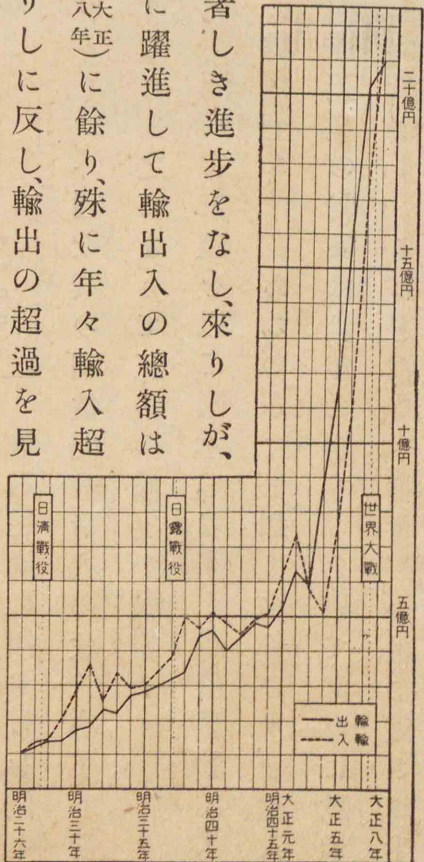 著しき進步をなし、來りしが、
に躍進して輸出入の總額は
大正
八年)に餘り、殊に年々輸入超
りしに反し、輸出の超過を見
二十億円
十五億円
十億円
五億円
世界大戰
日露戰役
日清戰役
輸出
輸入
明治二十六年
明治三十年
明治三十五年
明治四十年
明治四十五年
大正元年
大正五年
大正八年